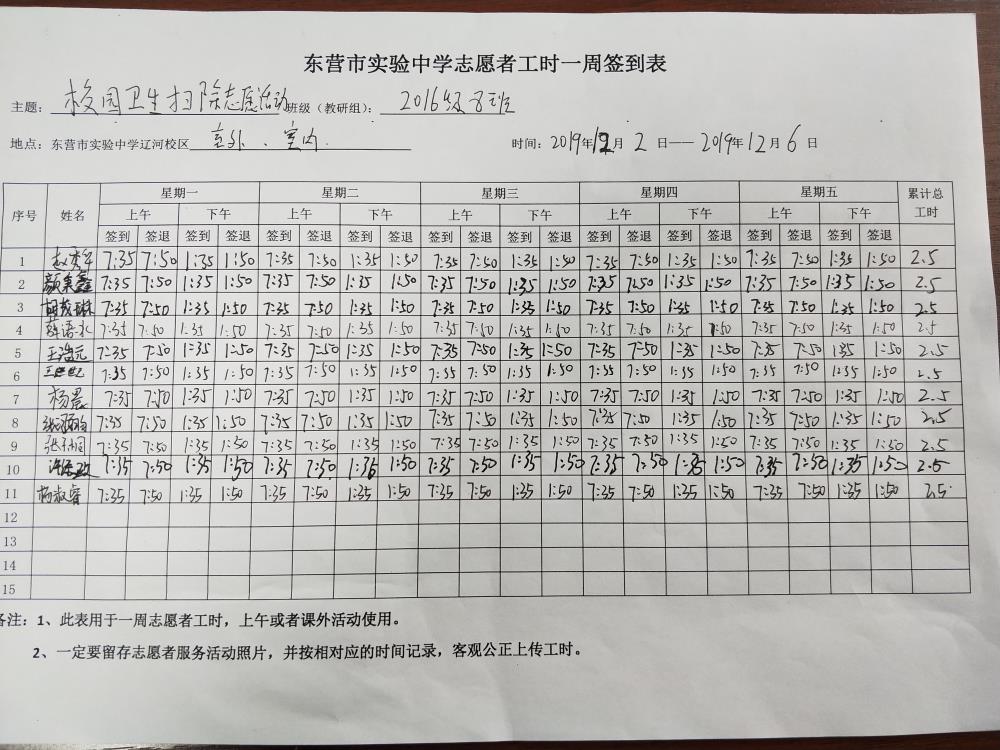 东营市实验中学志愿者工时一周签到表
主题：校园卫生扫除志愿活动 班级（教研组）：2016级8班
地点：东营市实验中学辽河校区 室外、室内. 时间：2019年12月2日——2019年12月6日
序号 姓名 星期一 星期二 星期三 星期四 星期五 累计总工时
上午 下午 上午 下午 上午 下午 上午 下午 上午 下午
签到 签退 签到 签退 签到 签退 签到 签退 签到 签退 签到 签退 签到 签退 签到 签退 签到 签退 签到 签退
1 7:35 7:50 1:35 1:50 7:35 7:50 1:35 1:50 7:35 7:50 1:35 1:50 7:35 7:50 1:35 1:50 7:35 7:50 1:35 1:50 2.5
2 7:35 7:50 1:35 1:50 7:35 7:50 1:35 1:50 7:35 7:50 1:35 1:50 7:35 7:50 1:35 1:50 7:35 7:50 1:35 1:50 2.5
3 7:35 7:50 1:35 1:50 7:35 7:50 1:35 1:50 7:35 7:50 1:35 1:50 7:35 7:50 1:35 1:50 7:35 7:50 1:35 1:50 2.5
4 7:35 7:50 1:35 1:50 7:35 7:50 1:35 1:50 7:35 7:50 1:35 1:50 7:35 7:50 1:35 1:50 7:35 7:50 1:35 1:50 2.5
5 7:35 7:50 1:35 1:50 7:35 7:50 1:35 1:50 7:35 7:50 1:35 1:50 7:35 7:50 1:35 1:50 7:35 7:50 1:35 1:50 2.5
6 7:35 7:50 1:35 1:50 7:35 7:50 1:35 1:50 7:35 7:50 1:35 1:50 7:35 7:50 1:35 1:50 7:35 7:50 1:35 1:50 2.5
7 杨晨 7:35 7:50 1:35 1:50 7:35 7:50 1:35 1:50 7:35 7:50 1:35 1:50 7:35 7:50 1:35 1:50 7:35 7:50 1:35 1:50 2.5
8 7:35 7:50 1:35 1:50 7:35 7:50 1:35 1:50 7:35 7:50 1:35 1:50 7:35 7:50 1:35 1:50 7:35 7:50 1:35 1:50 2.5
9 7:35 7:50 1:35 1:50 7:35 7:50 1:35 1:50 7:35 7:50 1:35 1:50 7:35 7:50 1:35 1:50 7:35 7:50 1:35 1:50 2.5
10 7:35 7:50 1:35 1:50 7:35 7:50 1:36 1:50 7:35 7:50 1:35 1:50 7:35 7:50 1:35 1:50 7:35 7:50 1:35 1:50 2.5
11 杨淑睿 7:35 7:50 1:35 1:50 7:35 7:50 1:35 1:50 7:35 7:50 1:35 1:50 7:35 7:50 1:35 1:50 7:35 7:50 1:35 1:50 2.5
12
13
14
15
备注：1、此表用于一周志愿者工时，上午或者课外活动使用。
2、一定要留存志愿者服务活动照片，并按相对应的时间记录，客观公正上传工时。